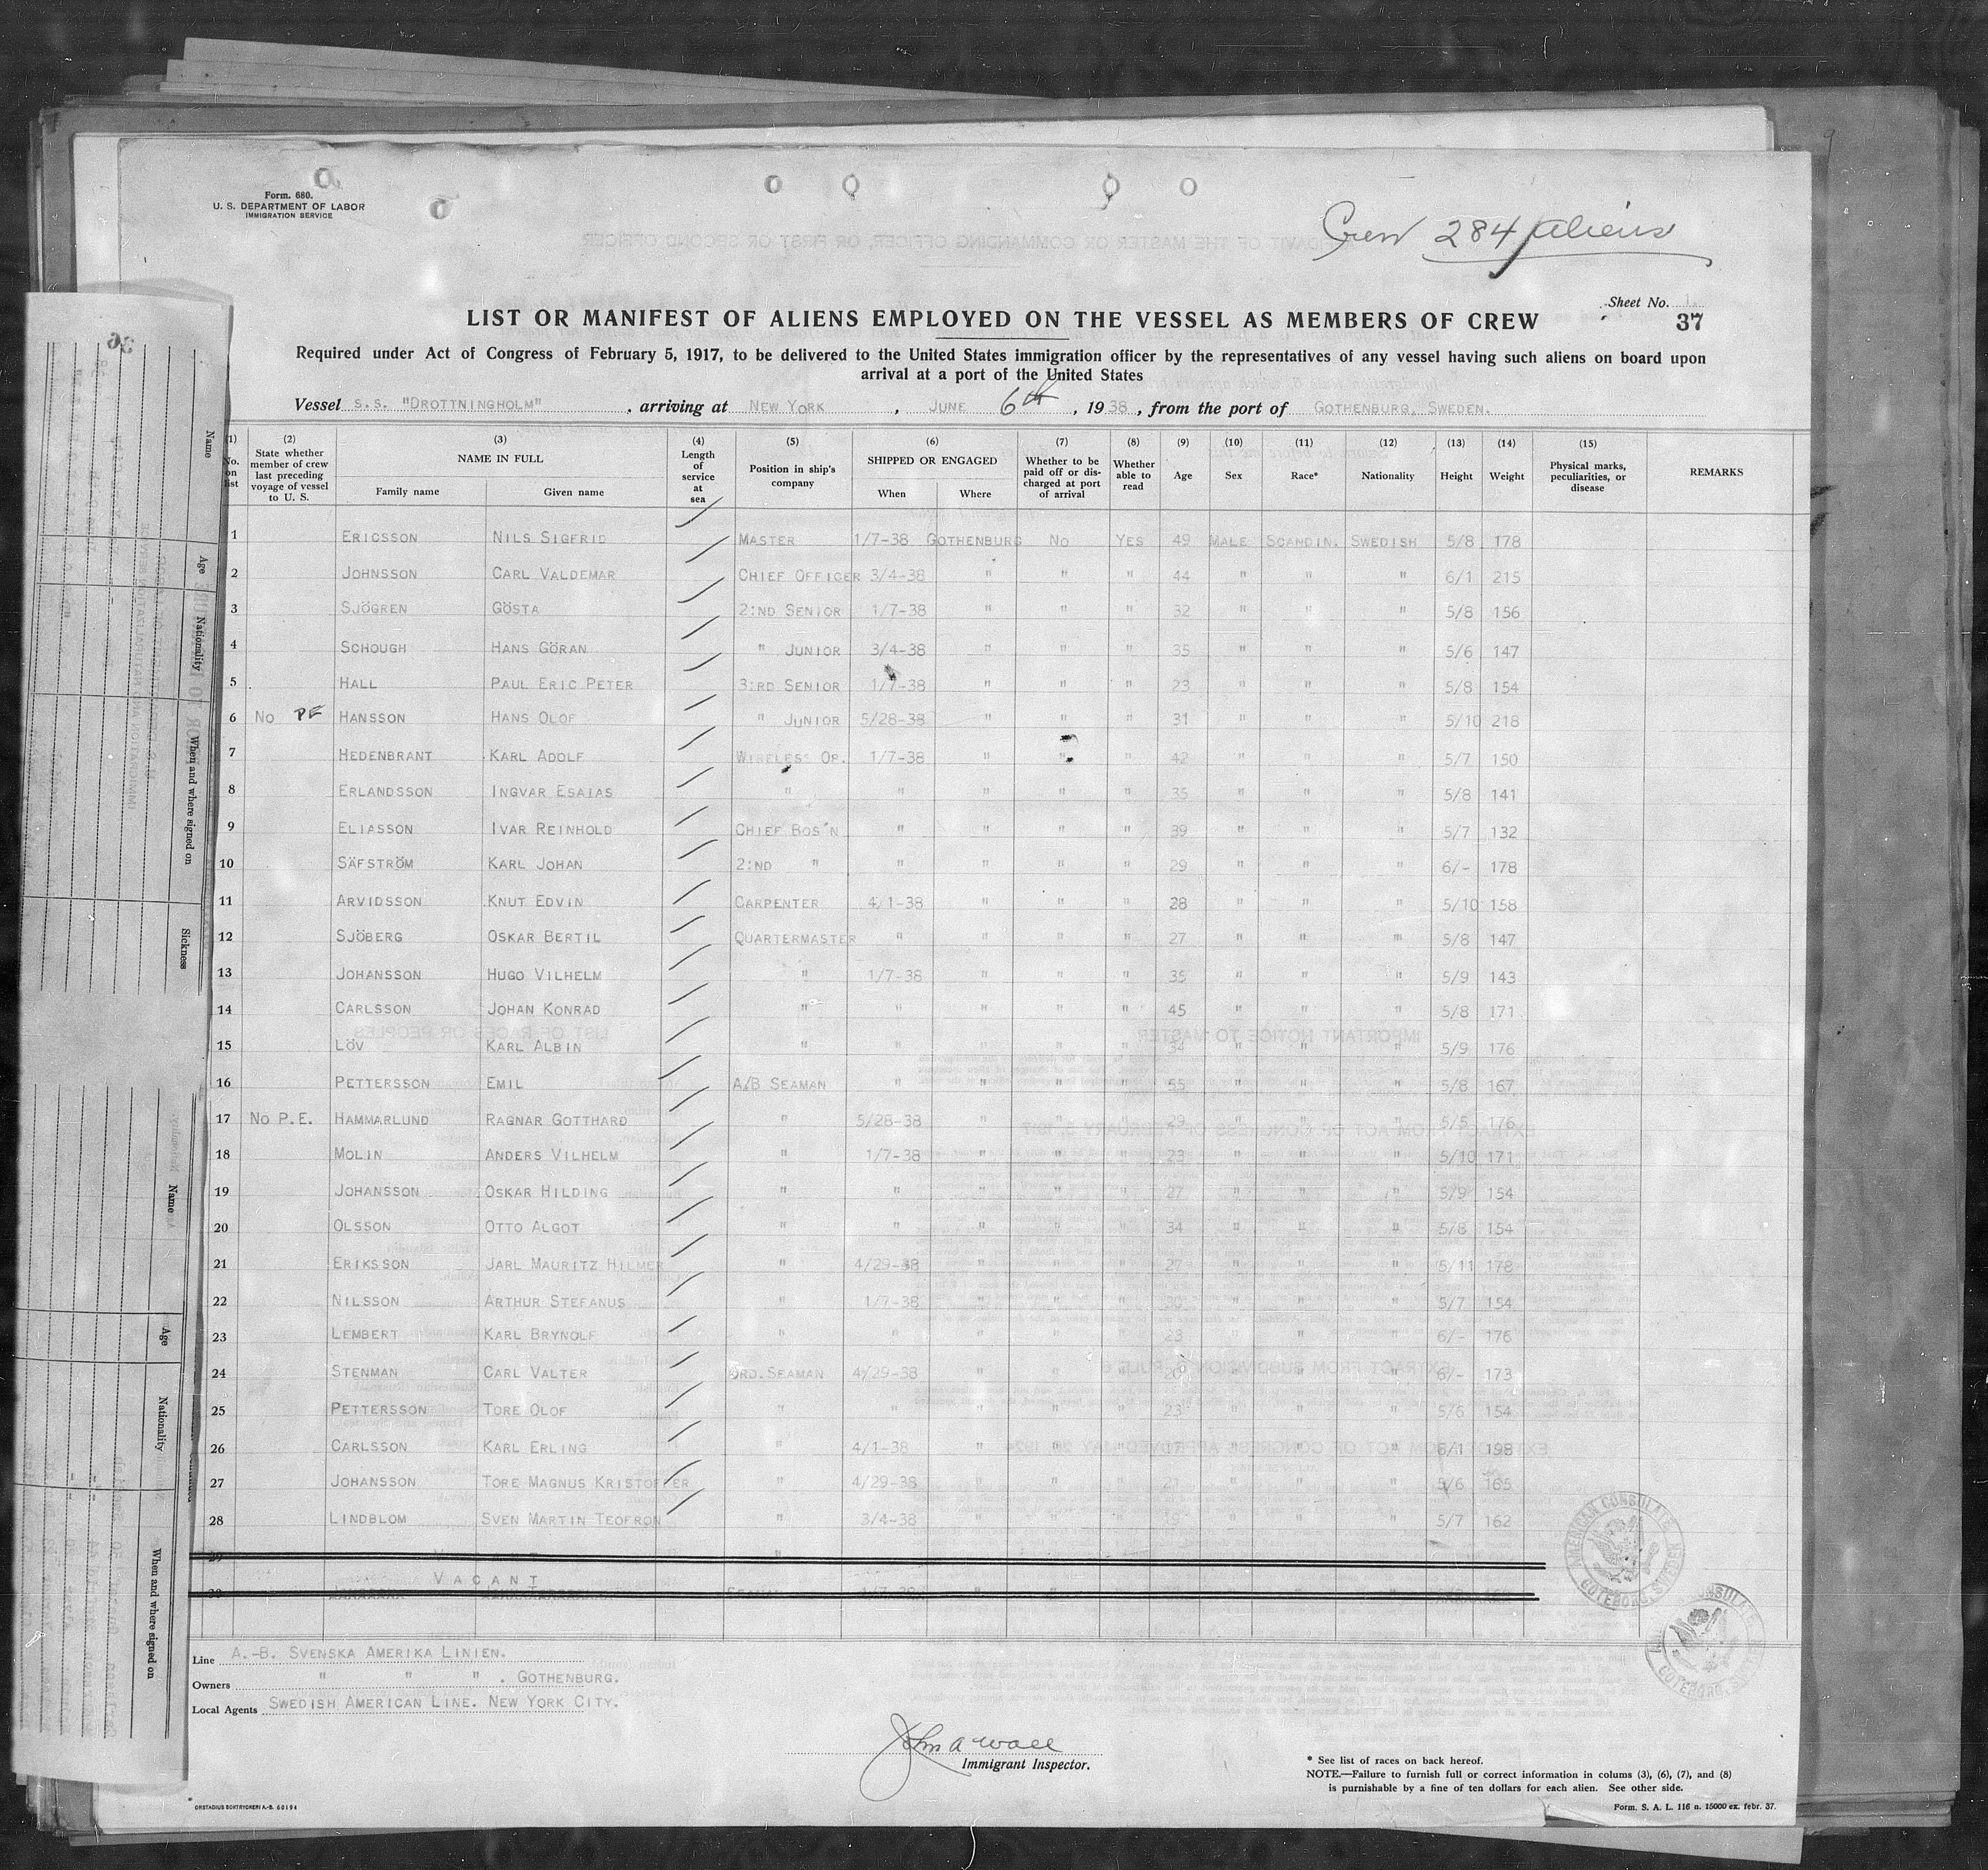 Form. 680.
U. S. DEPARTMENT OF LABOR
IMMIGRATION SERVICE
Crew 284 aliens
Sheet No. 1.
37
LIST OR MANIFEST OF ALIENS EMPLOYED ON THE VESSEL AS MEMBERS OF CREW
Required under Act of Congress of February 5, 1917, to be delivered to the United States immigration officer by the representatives of any vessel having such aliens on board upon
arrival at a port of the United States
Vessel S.S. "DROTTNINGHOLM" , arriving at NEW YORK , JUNE 6th , 1938 , from the port of GOTHENBURG, SWEDEN.
(1) No. on list (2) State whether member of crew last preceding voyage of vessel to U. S. (3) NAME IN FULL Family name Given name (4) Length of service at sea (5) Position in ship's company (6) SHIPPED OR ENGAGED When Where (7) Whether to be paid off or discharged at port of arrival (8) Whether able to read (9) Age (10) Sex (11) Race* (12) Nationality (13) Height (14) Weight (15) Physical marks, peculiarities, or disease REMARKS
1 ERICSSON NILS SIGFRID MASTER 1/7-38 GOTHENBURG NO YES 49 MALE SCANDIN. SWEDISH 5/8 178
2 JOHNSSON CARL VALDEMAR CHIEF OFFICER 3/4-38 " " " 44 " " " 6/1 215
3 SJÖGREN GÖSTA 2:ND SENIOR 1/7-38 " " " 32 " " " 5/8 156
4 SCHOUGH HANS GÖRAN " JUNIOR 3/4-38 " " " 35 " " " 5/6 147
5 HALL PAUL ERIC PETER 3:RD SENIOR 1/7-38 " " " 23 " " " 5/8 154
6 NO PE HANSSON HANS OLOF " JUNIOR 5/28-38 " " " 31 " " " 5/10 218
7 HEDENBRANT KARL ADOLF WIRELESS OP. 1/7-38 " " " 42 " " " 5/7 150
8 ERLANDSSON INGVAR ESAIAS " " " " " 35 " " " 5/8 141
9 ELIASSON IVAR REINHOLD CHIEF BOS'N " " " " 39 " " " 5/7 132
10 SÄFSTRÖM KARL JOHAN 2:ND " " " " " 29 " " " 6/- 178
11 ARVIDSSON KNUT EDVIN CARPENTER 4/1-38 " " " 28 " " " 5/10 158
12 SJÖBERG OSKAR BERTIL QUARTERMASTER " " " " 27 " " " 5/8 147
13 JOHANSSON HUGO VILHELM " 1/7-38 " " " 35 " " " 5/9 143
14 CARLSSON JOHAN KONRAD " " " " " 45 " " " 5/8 171
15 LÖV KARL ALBIN " " " " " 34 " " " 5/9 176
16 PETTERSSON EMIL A/B SEAMAN " " " " 55 " " " 5/8 167
17 NO P.E. HAMMARLUND RAGNAR GOTTHARD " 5/28-38 " " " 29 " " " 5/5 176
18 MOLIN ANDERS VILHELM " 1/7-38 " " " 23 " " " 5/10 171
19 JOHANSSON OSKAR HILDING " " " " " 27 " " " 5/9 154
20 OLSSON OTTO ALGOT " " " " " 34 " " " 5/8 154
21 ERIKSSON JARL MAURITZ HILMER " 4/29-38 " " " 27 " " " 5/11 178
22 NILSSON ARTHUR STEFANUS " 1/7-38 " " " 30 " " " 5/7 154
23 LEMBERT KARL BRYNOLF " " " " " 23 " " " 6/- 176
24 STENMAN CARL VALTER ORD. SEAMAN 4/29-38 " " " 20 " " " 6/- 173
25 PETTERSSON TORE OLOF " " " " " 23 " " " 5/6 154
26 CARLSSON KARL ERLING " 4/1-38 " " " " " " 6/1 198
27 JOHANSSON TORE MAGNUS KRISTOFFER " 4/29-38 " " " 21 " " " 5/6 165
28 LINDBLOM SVEN MARTIN TEOFRON " 3/4-38 " " " " " " 5/7 162
29
VACANT
30
Line A.-B. SVENSKA AMERIKA LINIEN.
Owners " " " . GOTHENBURG.
Local Agents SWEDISH AMERICAN LINE. NEW YORK CITY.
John A Wall
Immigrant Inspector.
* See list of races on back hereof.
NOTE.—Failure to furnish full or correct information in colums (3), (6), (7), and (8)
is purnishable by a fine of ten dollars for each alien. See other side.
Form. S. A. L. 116 n. 15000 ex. febr. 37.
ORSTADIUS BOKTRYCKERI A.-B. 60194
AMERICAN CONSULATE
GOTEBORG, SWEDEN
Name
Age
Nationality
When and where signed on
Sickness
Name
Age
Nationality
When and where signed on